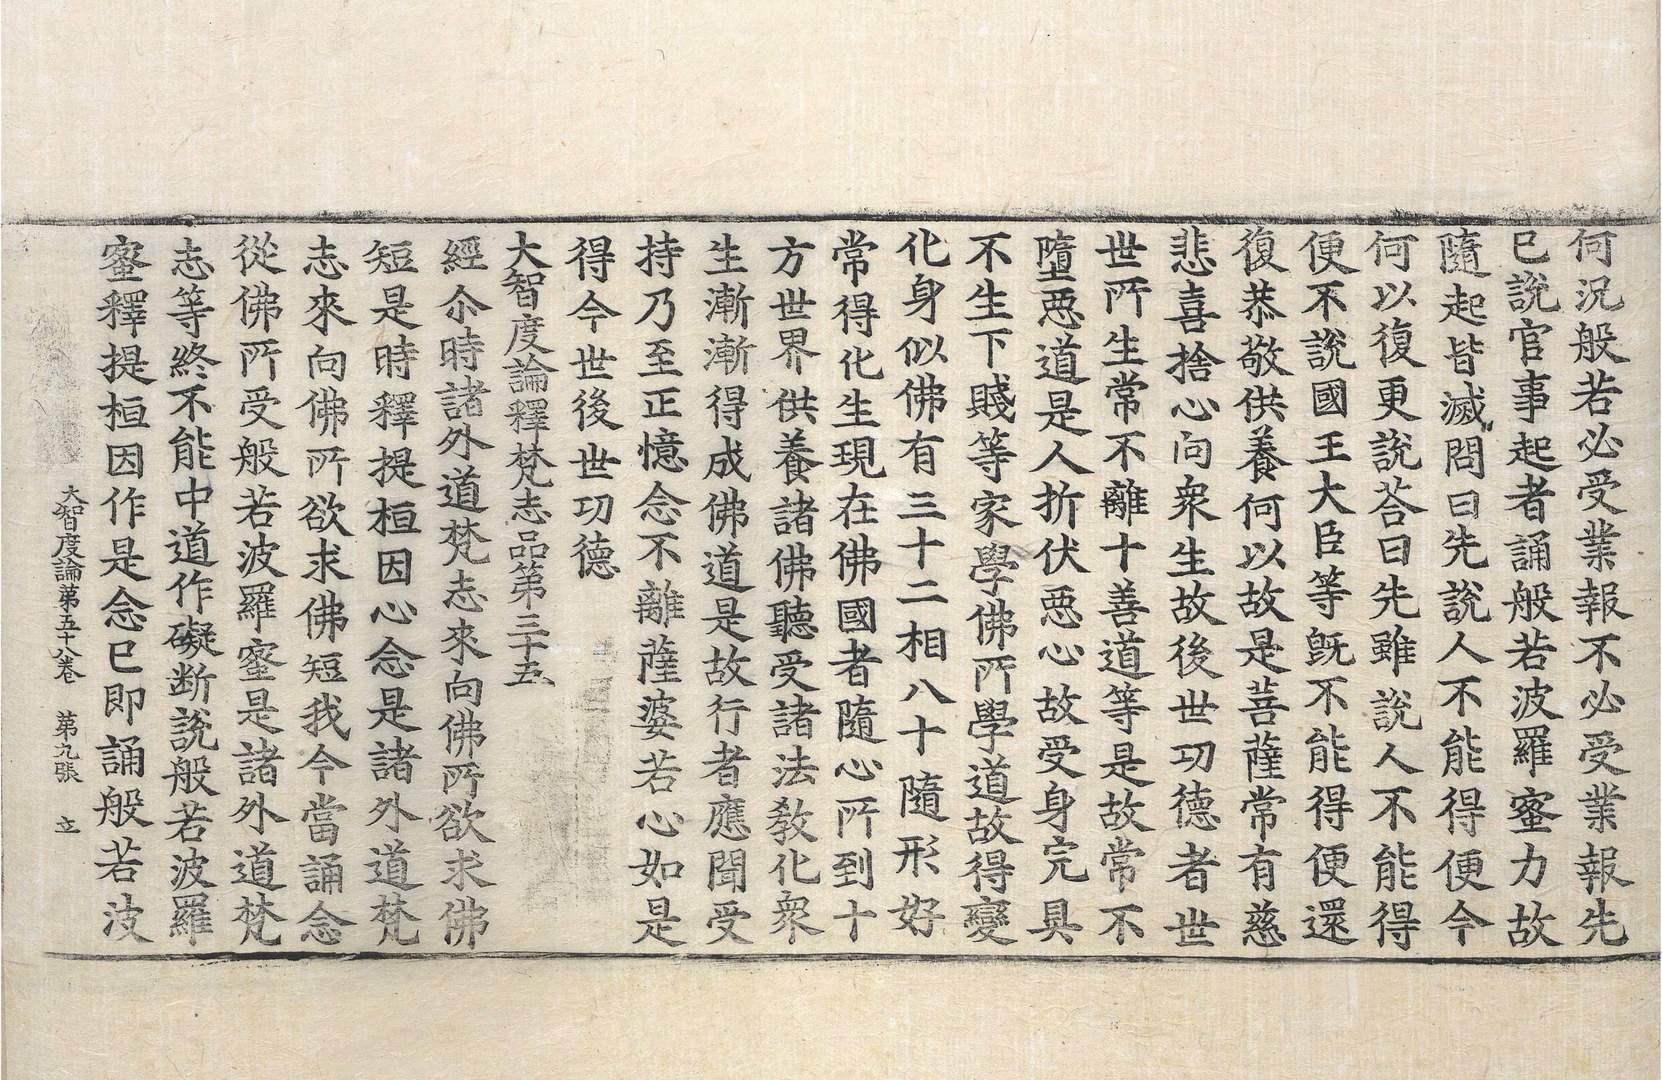 何況般若必受業報不必受業報先
已說官事起者誦般若波羅蜜力故
隨起皆滅問曰先說人不能得便今
何以復更說荅曰先雖說人不能得
便不說國王大臣等旣不能得便還
復恭敬供養何以故是菩薩常有慈
悲喜捨心向衆生故後世功德者世
世所生常不離十善道等是故常不
墮惡道是人折伏惡心故受身完具
不生下賤等家學佛所學道故得變
化身似佛有三十二相八十隨形好
常得化生現在佛國者隨心所到十
方世界供養諸佛聽受諸法教化衆
生漸漸得成佛道是故行者應聞受
持乃至正憶念不離薩婆若心如是
得今世後世功德
大智度論釋梵志品第三十五
經尒時諸外道梵志來向佛所欲求佛
短是時釋提桓因心念是諸外道梵
志來向佛所欲求佛短我今當誦念
從佛所受般若波羅蜜是諸外道梵
志等終不能中道作礙断說般若波羅
蜜釋提桓因作是念已即誦般若波
大智度論第五十八卷 第九張 立